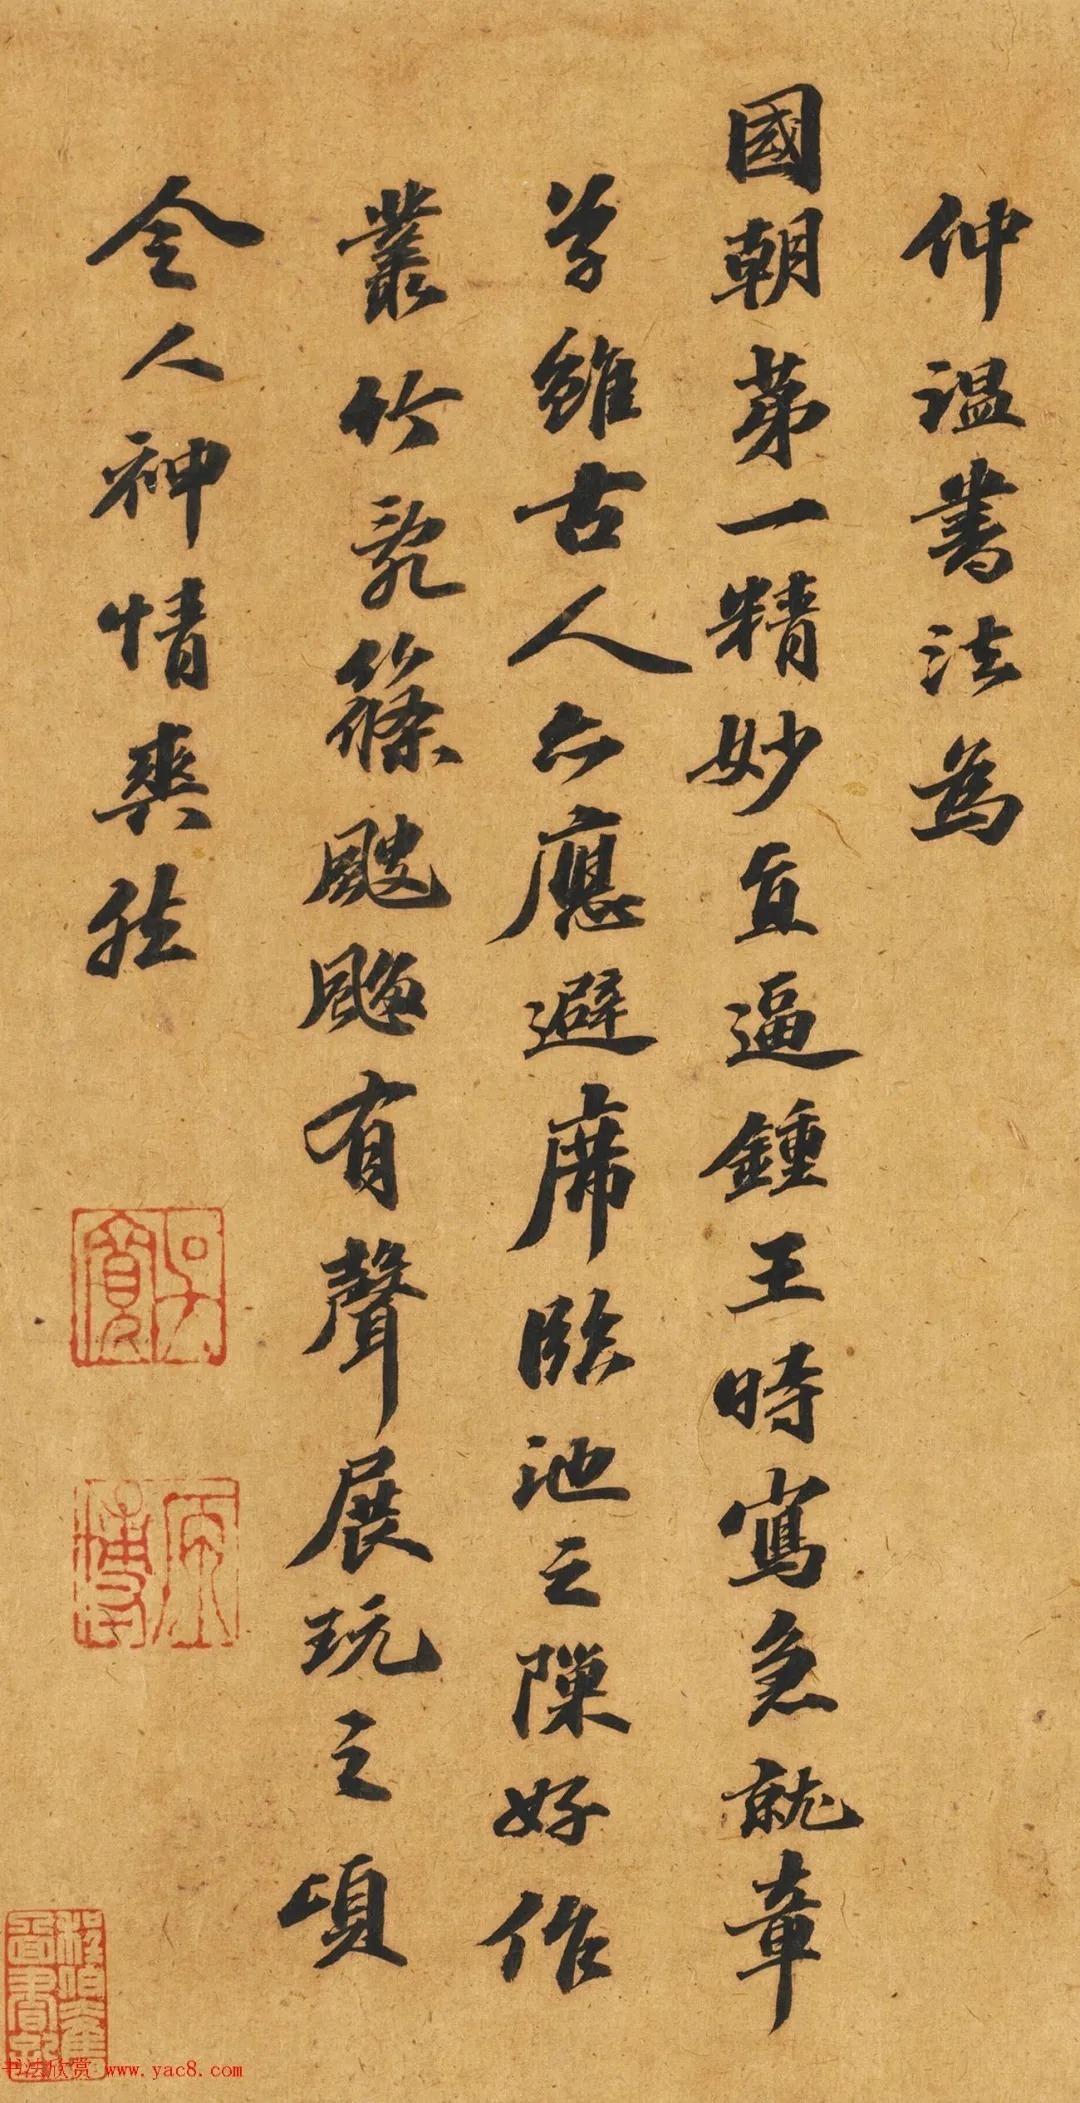 仲温書法為
國朝第一精妙直逼鍾王時寫急就章
草雖古人亦應避席臨池之隙好作
叢竹亂篠颼飀有聲展玩之頃
令人神情爽然
吳寬
原博
程伯奮圖書記
书法欣赏 www.yac8.com